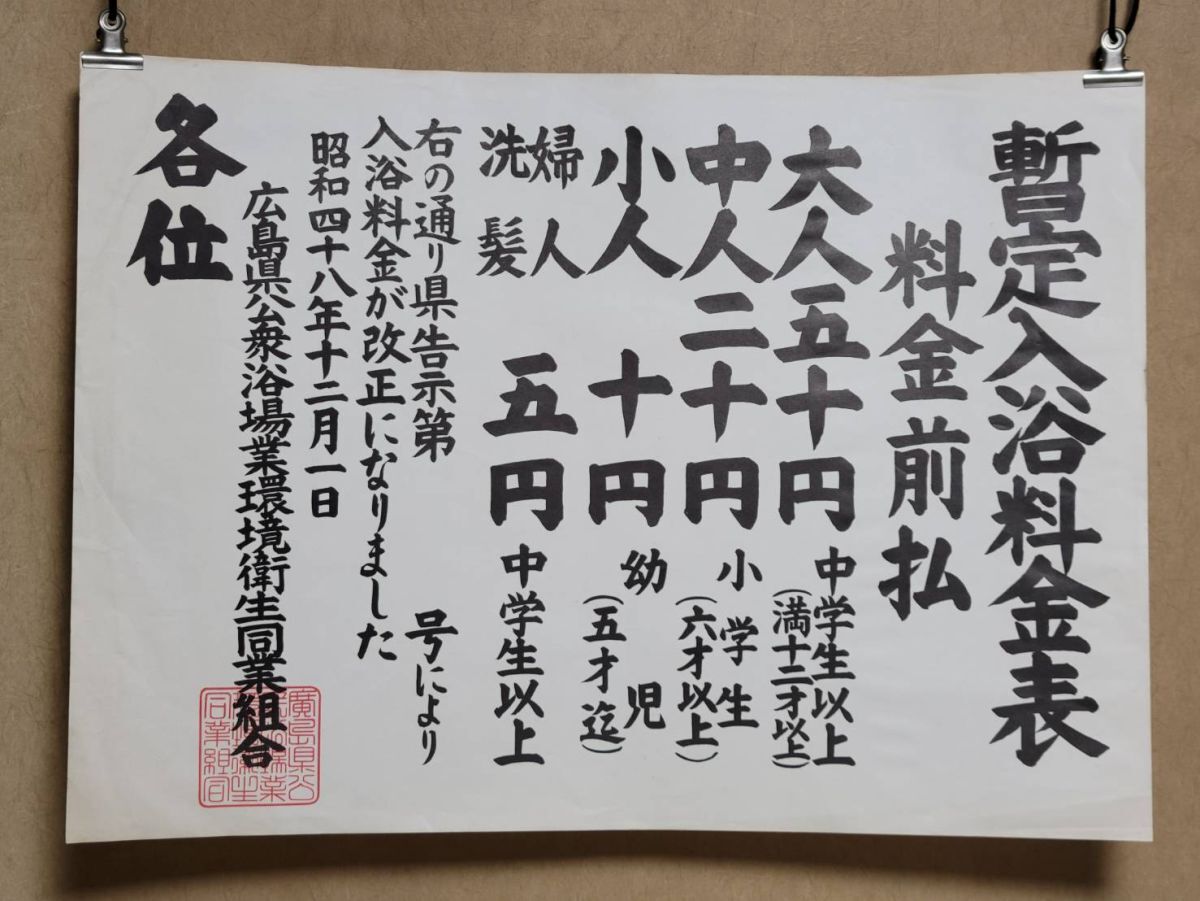 暫定入浴料金表
料金前払
大人五十円 中学生以上(満十二才以上)
中人二十円 小学生(六才以上)
小人 十円 幼児(五才迄)
婦人洗髪 五円 中学生以上
右の通り県告示第 号により
入浴料金が改正になりました
昭和四十八年十二月一日
広島県公衆浴場業環境衛生同業組合
各位